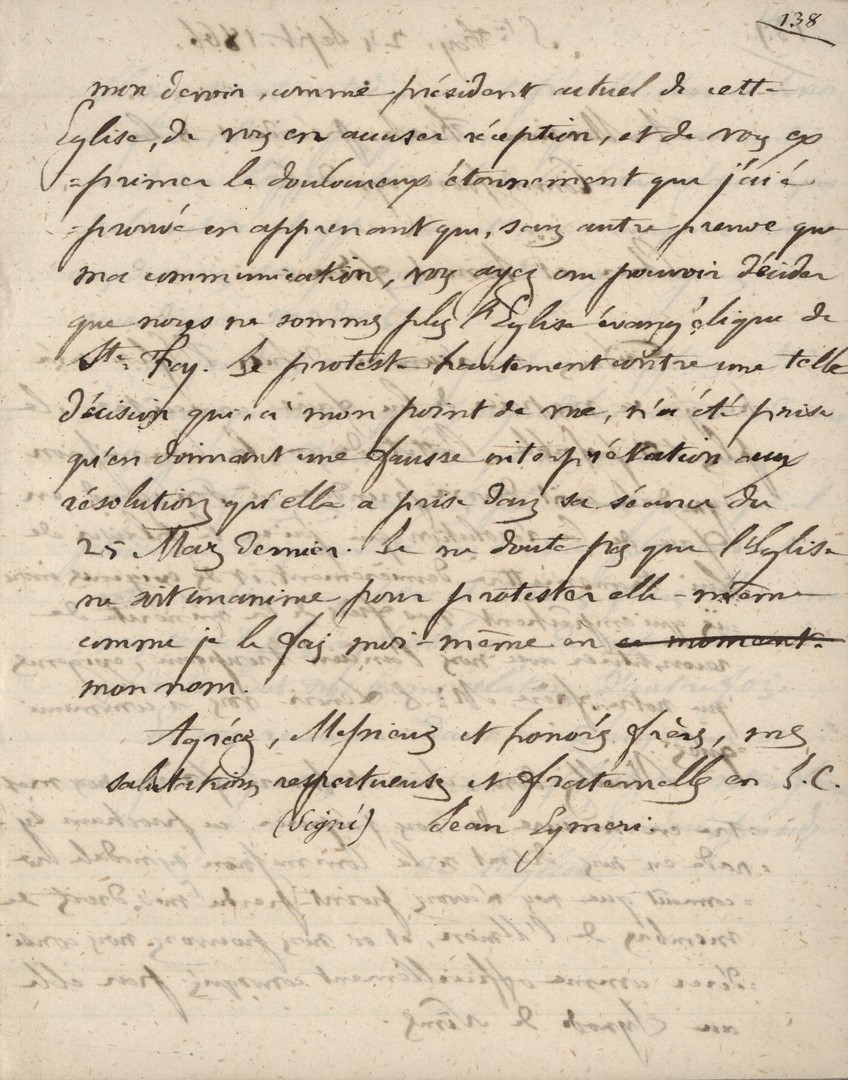 138
mon devoir, comme président actuel de cette
Eglise, de vous en accuser réception, et de vous ex
=primer le douloureux étonnement que j'ai é
=prouvé en apprenant que, sans autre preuve que
ma communication, vous ayez cru pouvoir décider
que nous ne sommes plus l'Eglise évangélique de
Ste Foy. Je proteste hautement contre une telle
décision qui, à mon point de vue, n'a été prise
qu'en donnant une fausse interprétation aux
résolutions qu'elle a prises dans sa séance du
25 Mars dernier. Je ne doute pas que l'Eglise
ne soit unanime pour protester elle-même
comme je le fais moi-même en ce moment.
mon nom.
Agréez, Messieurs et honorés frères, mes
salutations respectueuses et fraternelles en J.C.
(Signé) Jean Eymeri.